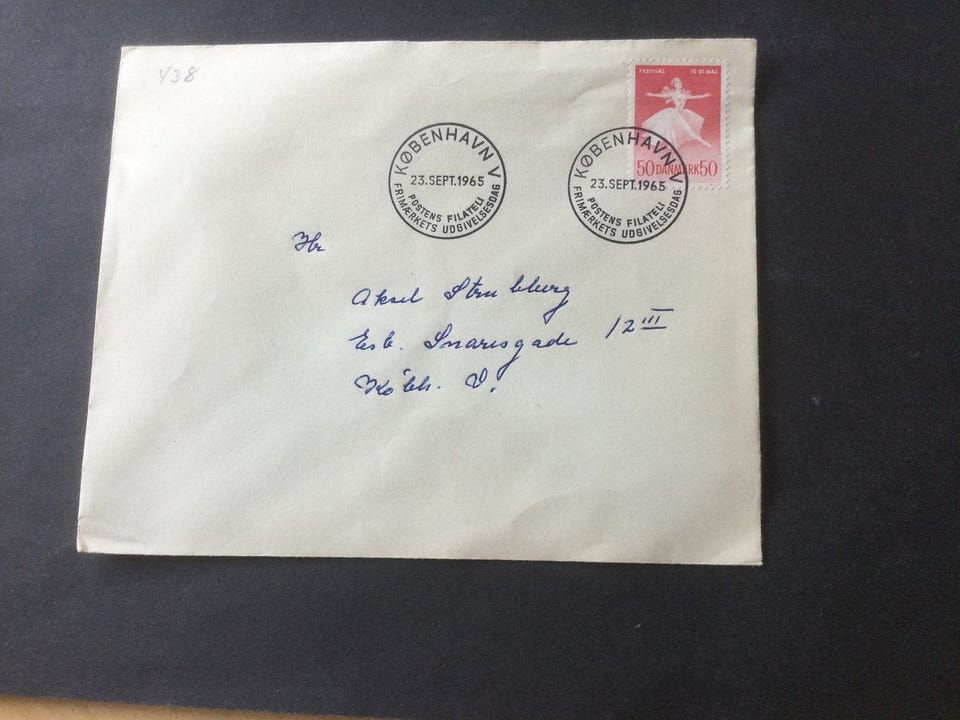 438
FESTIVAL 15-31 MAJ
50 DANMARK 50
KØBENHAVN V
23.SEPT.1965
POSTENS FILATELI
FRIMÆRKETS UDGIVELSESDAG
KØBENHAVN V
23.SEPT.1965
POSTENS FILATELI
FRIMÆRKETS UDGIVELSESDAG
Hr
Aksel Strubberg
Esb. Snaresgade 12 III
Kbh. V.